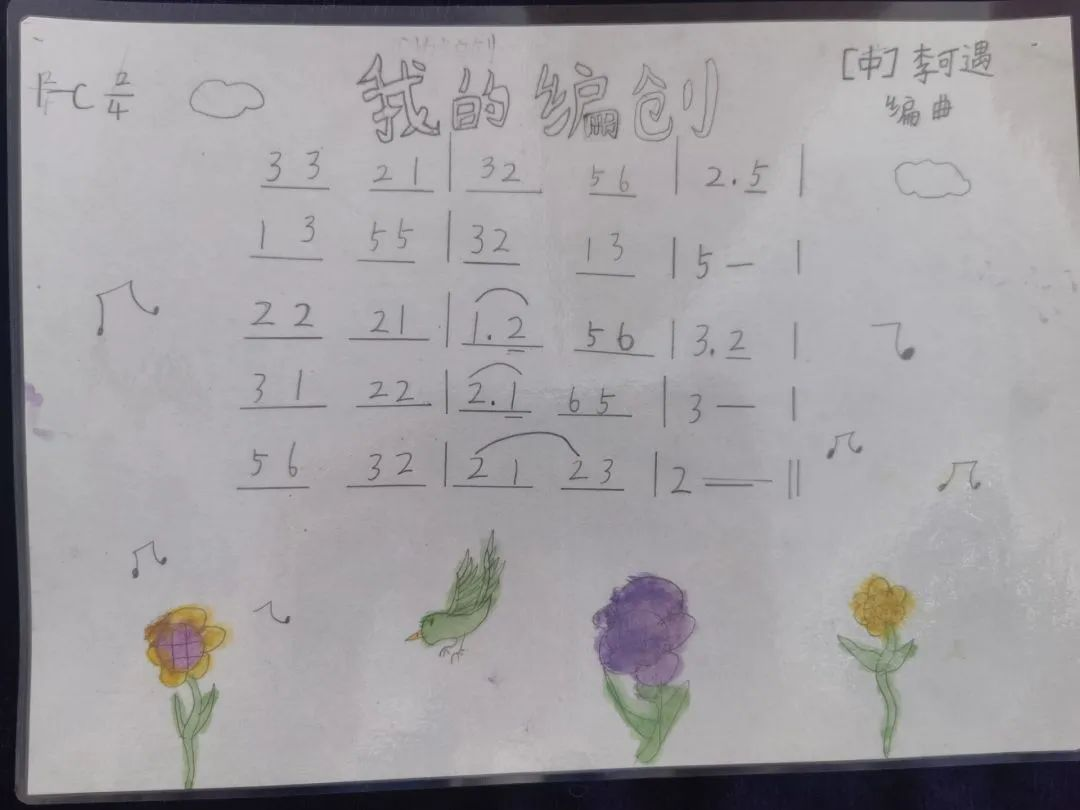 我的编创
[中] 李可遇
1=C 2/4
编曲
3 3 2 1 | 3 2 5 6 | 2. 5 |
1 3 5 5 | 3 2 1 3 | 5 — |
2 2 2 1 | 1. 2 5 6 | 3. 2 |
3 1 2 2 | 2. 1 6 5 | 3 — |
5 6 3 2 | 2 1 2 3 | 2 — ‖